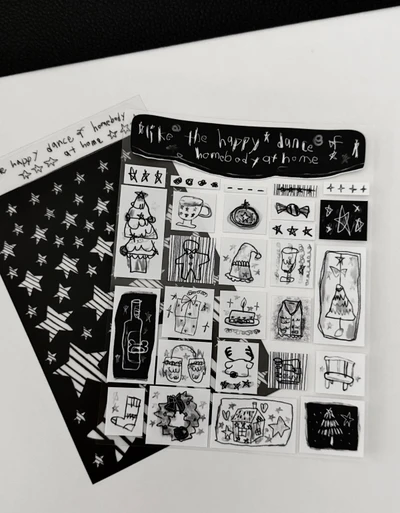 e happy dance of homebody
at home
like the happy dance of
a homebody at home